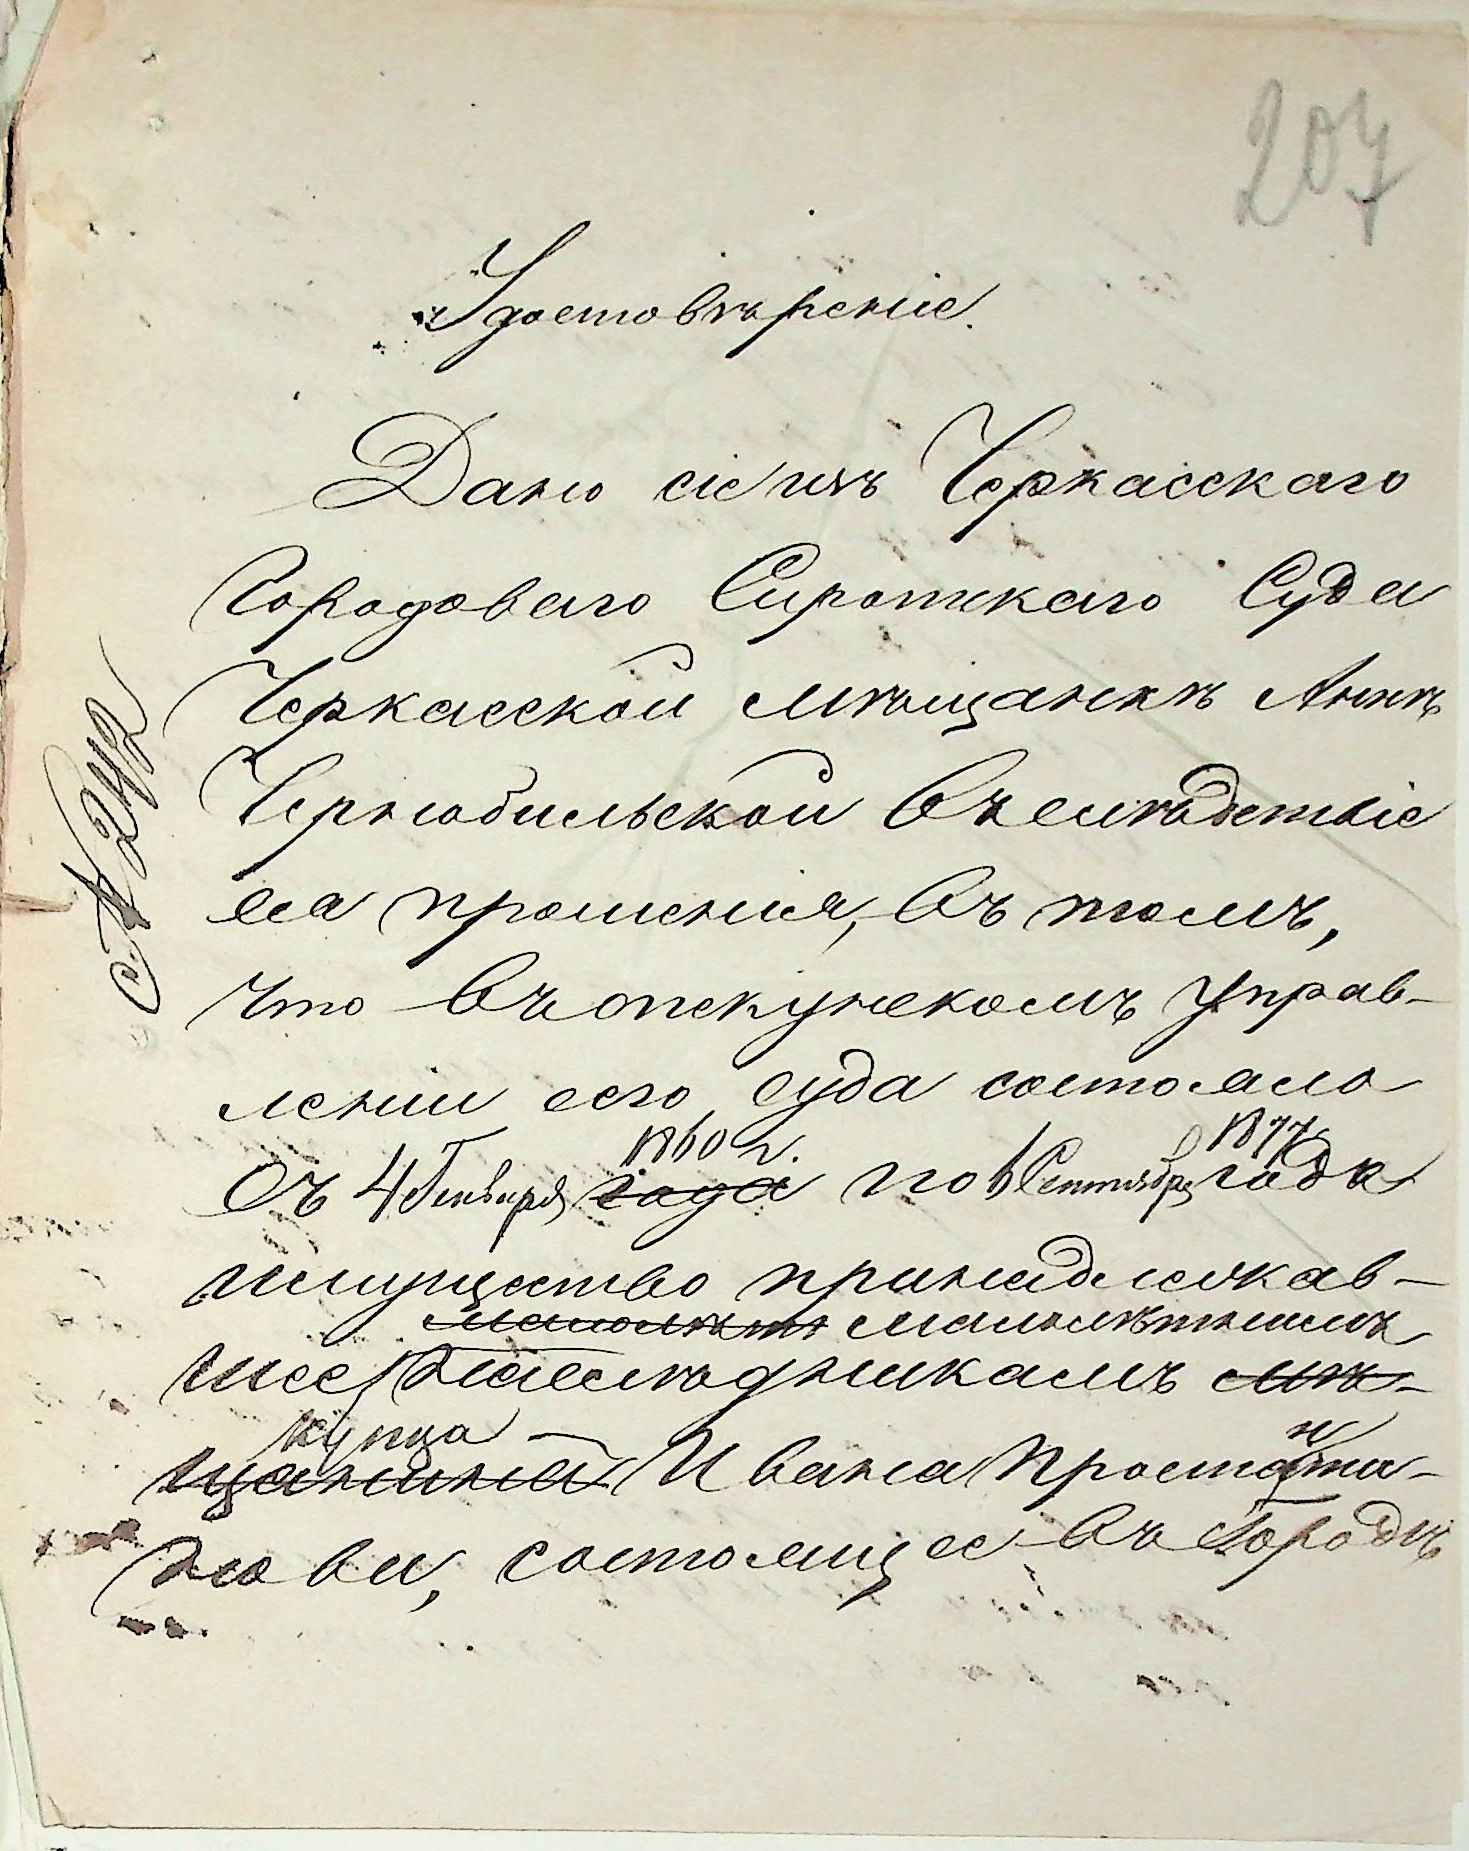 207
Удостовѣреніе.
Дано сіе изъ Черкасскаго
Городоваго Сиротскаго Суда
Черкасской мѣщанкѣ Аннѣ
Чернобильской вслѣдствіе
ея прошенія, въ томъ,
что въ опекунскомъ управ-
леніи сего суда состояло
1860 г. 1877
Съ 4 Генваря года по 6 Сентября года
имущество принадлежав-
малолѣтн малолѣтнимъ
шее наслѣдникамъ мѣ-
купца
щанина Ивана Простати-
нова, состоящее въ Городѣ
№ 242